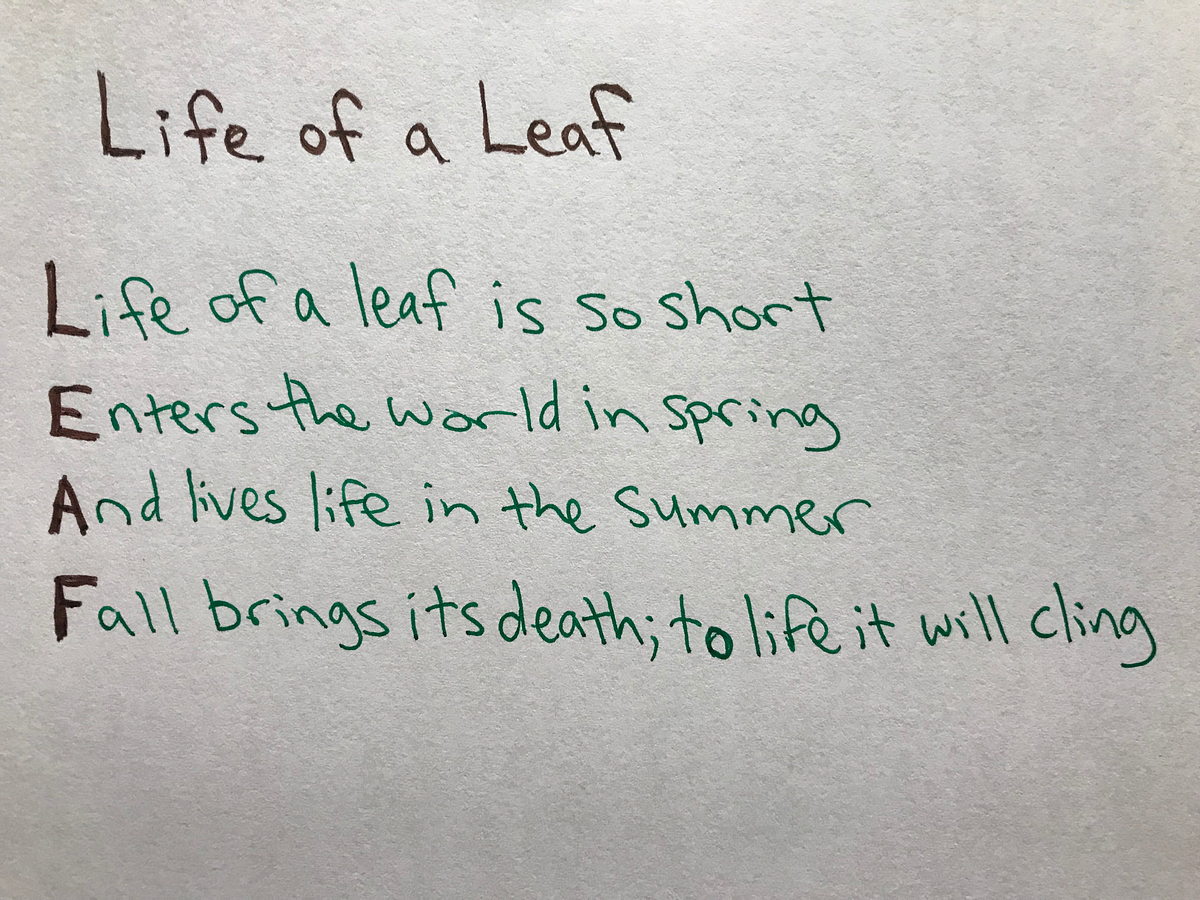 Life of a Leaf
Life of a leaf is so short
Enters the world in spring
And lives life in the summer
Fall brings its death; to life it will cling